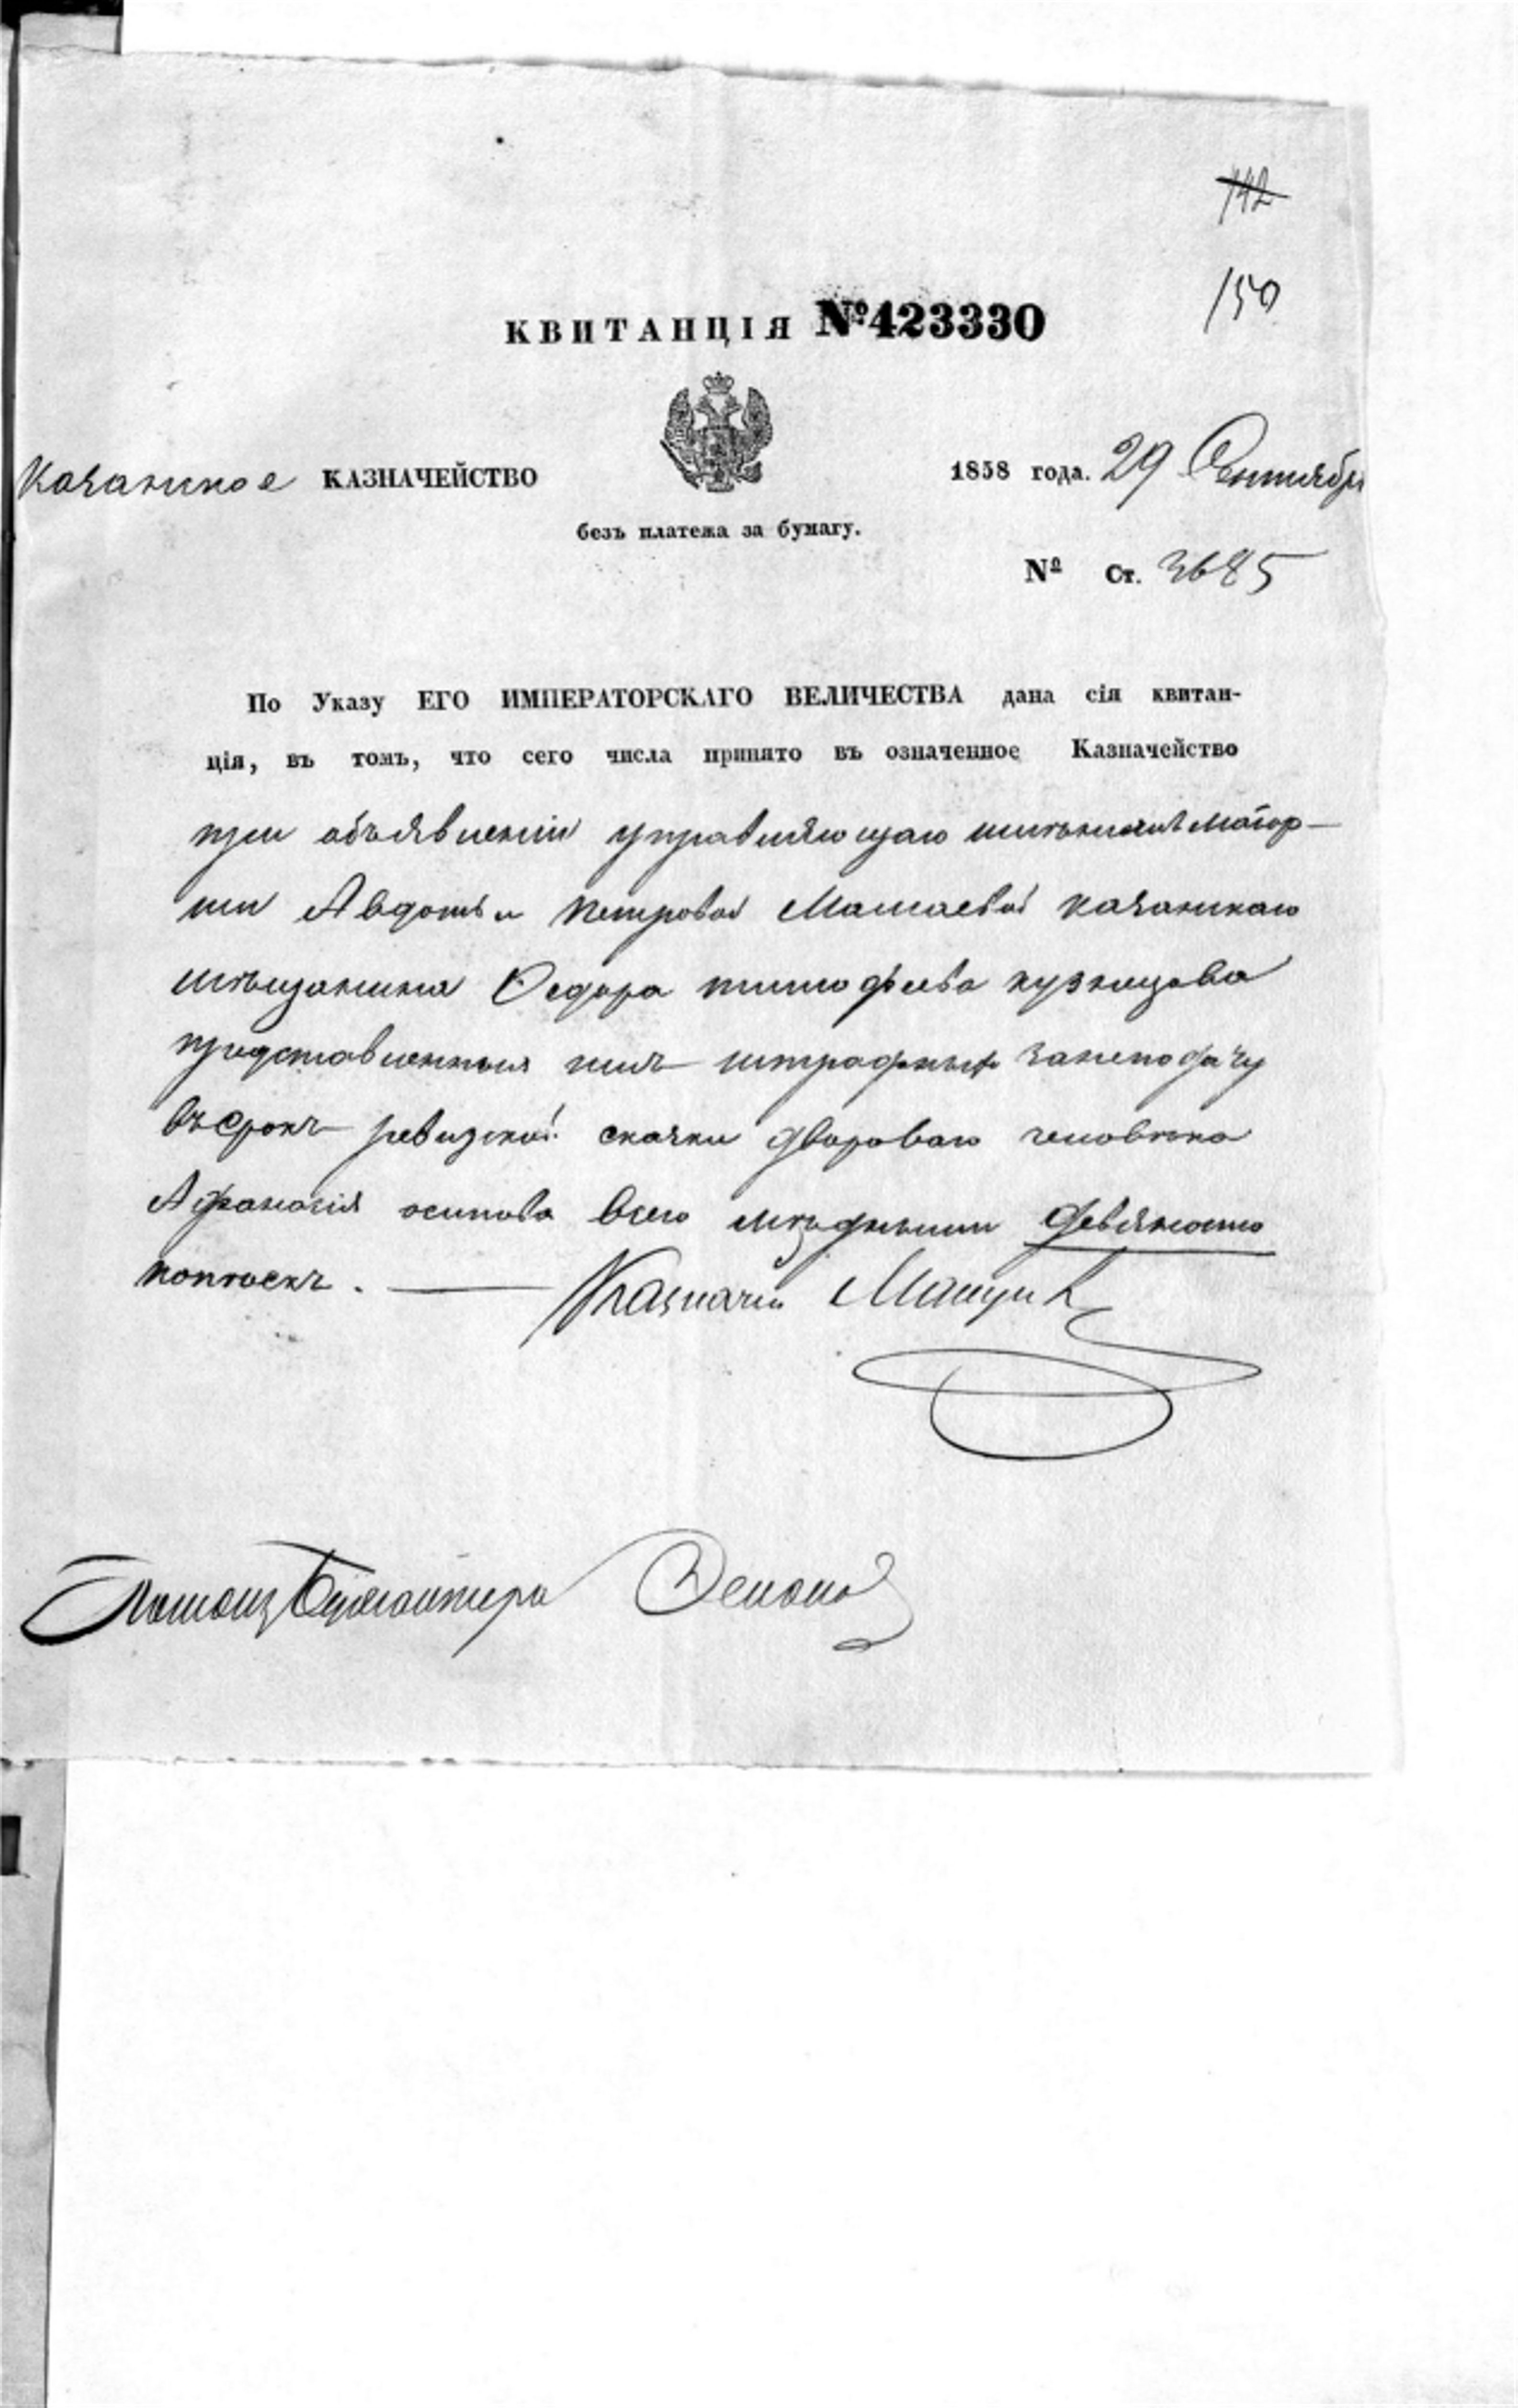 142
150
КВИТАНЦІЯ №423330
Казанское КАЗНАЧЕЙСТВО
1858 года. 29 Сентября
безъ платежа за бумагу.
№ Ст. 3685
По Указу ЕГО ИМПЕРАТОРСКАГО ВЕЛИЧЕСТВА дана сія квитан-
ція, въ томъ, что сего числа принято въ означенное Казначейство
при объявленіи управляющаго имѣніемъ маіор-
ши Авдотьи Петровой Мамаевой казанскаго
мѣщанина Федора тимофеева кузнецова
представленныя имъ штрафныя занеподачу
въ срокъ ревизской сказки двороваго человѣка
Афанасія осипова всего мѣдными девяносто
копѣекъ.
Казначей
Помощ Бухгалтера